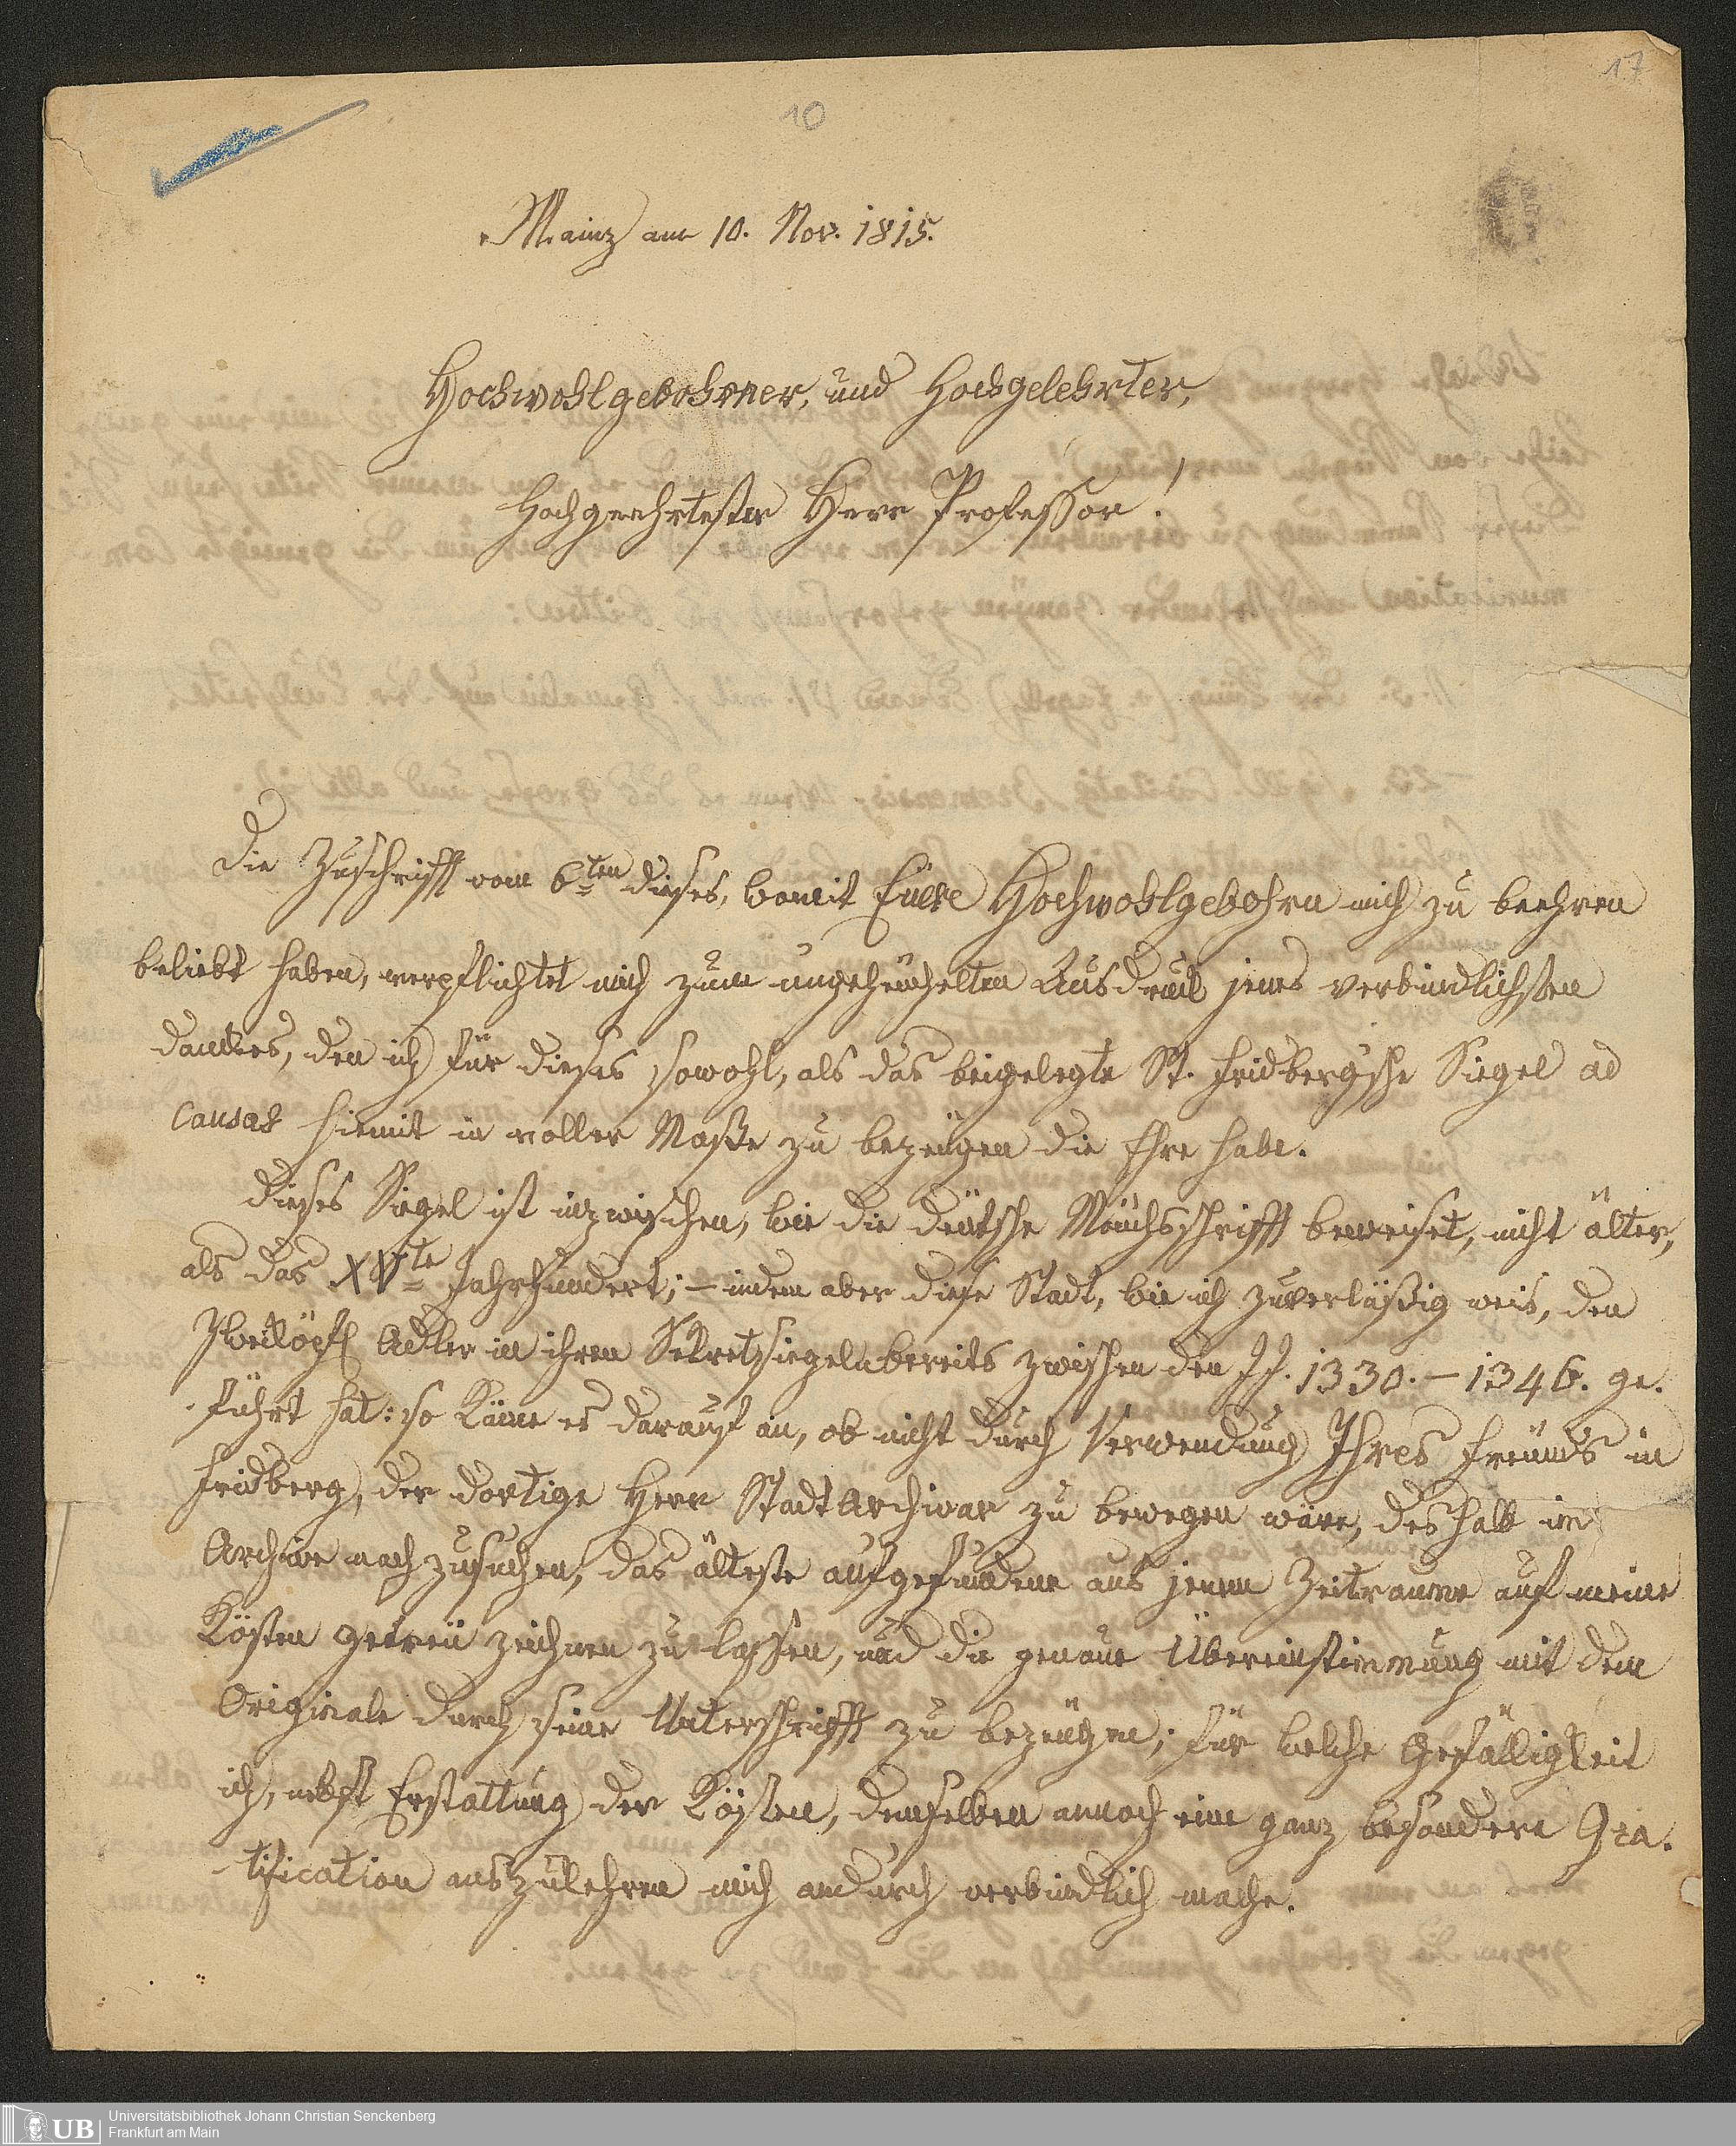 17
10
Mainz am 10. Nov. 1815.
Hochwohlgebohrner, und Hochgelehrter,
Hochgeehrtester Herr Professor!
Die Zuschrifft vom 6ten dieses, womit Euere Hochwohlgebohrn mich zu beehren
beliebt haben, verpflichtet mich zum ungeheuchelten Ausdruck jenes verbindlichsten
Dankes, den ich für dieses sowohl, als das beigelegte St. Fridberg'sche Siegel ad
causas hiemit in voller Maße zu bezeugen die Ehre habe.
Dieses Siegel ist inzwischen, wie die deutsche Mönchsschrifft beweiset, nicht älter,
als das XVte Jahrhundert; – indem aber diese Stadt, wie ich zuverläßig weis, den
Zweiköpf. Adler in ihren Sekretsiegeln bereits zwischen den JJ. 1330. – 1346. ge-
führt hat: so käme es darauf an, ob nicht durch Verwendung Ihres Freunds in
Fridberg, der dortige Herr StadtArchivar zu bewegen wäre, deshalb im
Archive nachzusuchen, das älteste aufgefundene aus jenem Zeitraume auf meine
Kösten getreu zeichnen zu lassen, und die genaue Übereinstimmung mit dem
Originale durch seine Unterschrifft zu bezeugen; für welche Gefälligkeit
ich, nebst Erstattung der Kösten, demselben annoch eine ganz besondere Gra-
tification auszukehren mich andurch verbindlich mache.
UB
Universitätsbibliothek Johann Christian Senckenberg
Frankfurt am Main